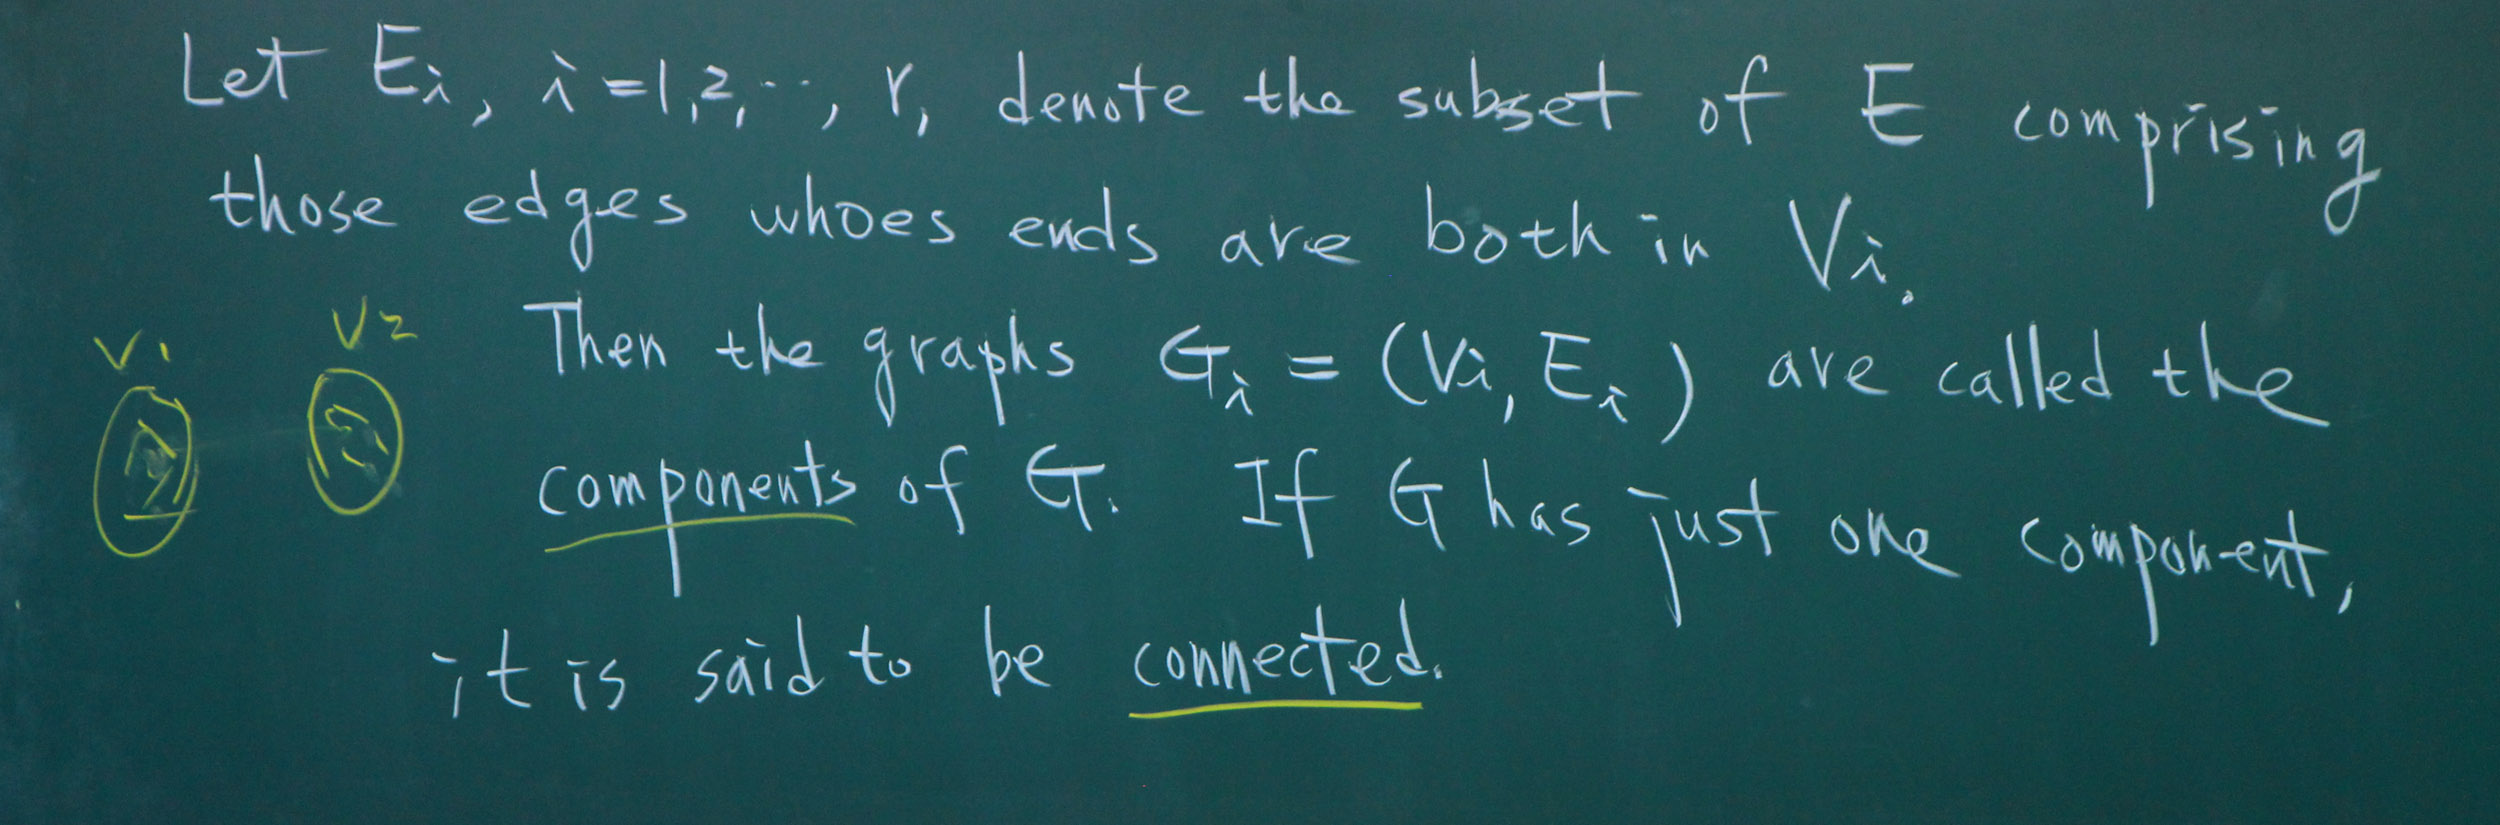 Let Ei, i=1,2,…, r, denote the subset of E comprising
those edges whoes ends are both in Vi.
V1 V2
Then the graphs Gi = (Vi, Ei) are called the
components of G. If G has just one component,
it is said to be connected.